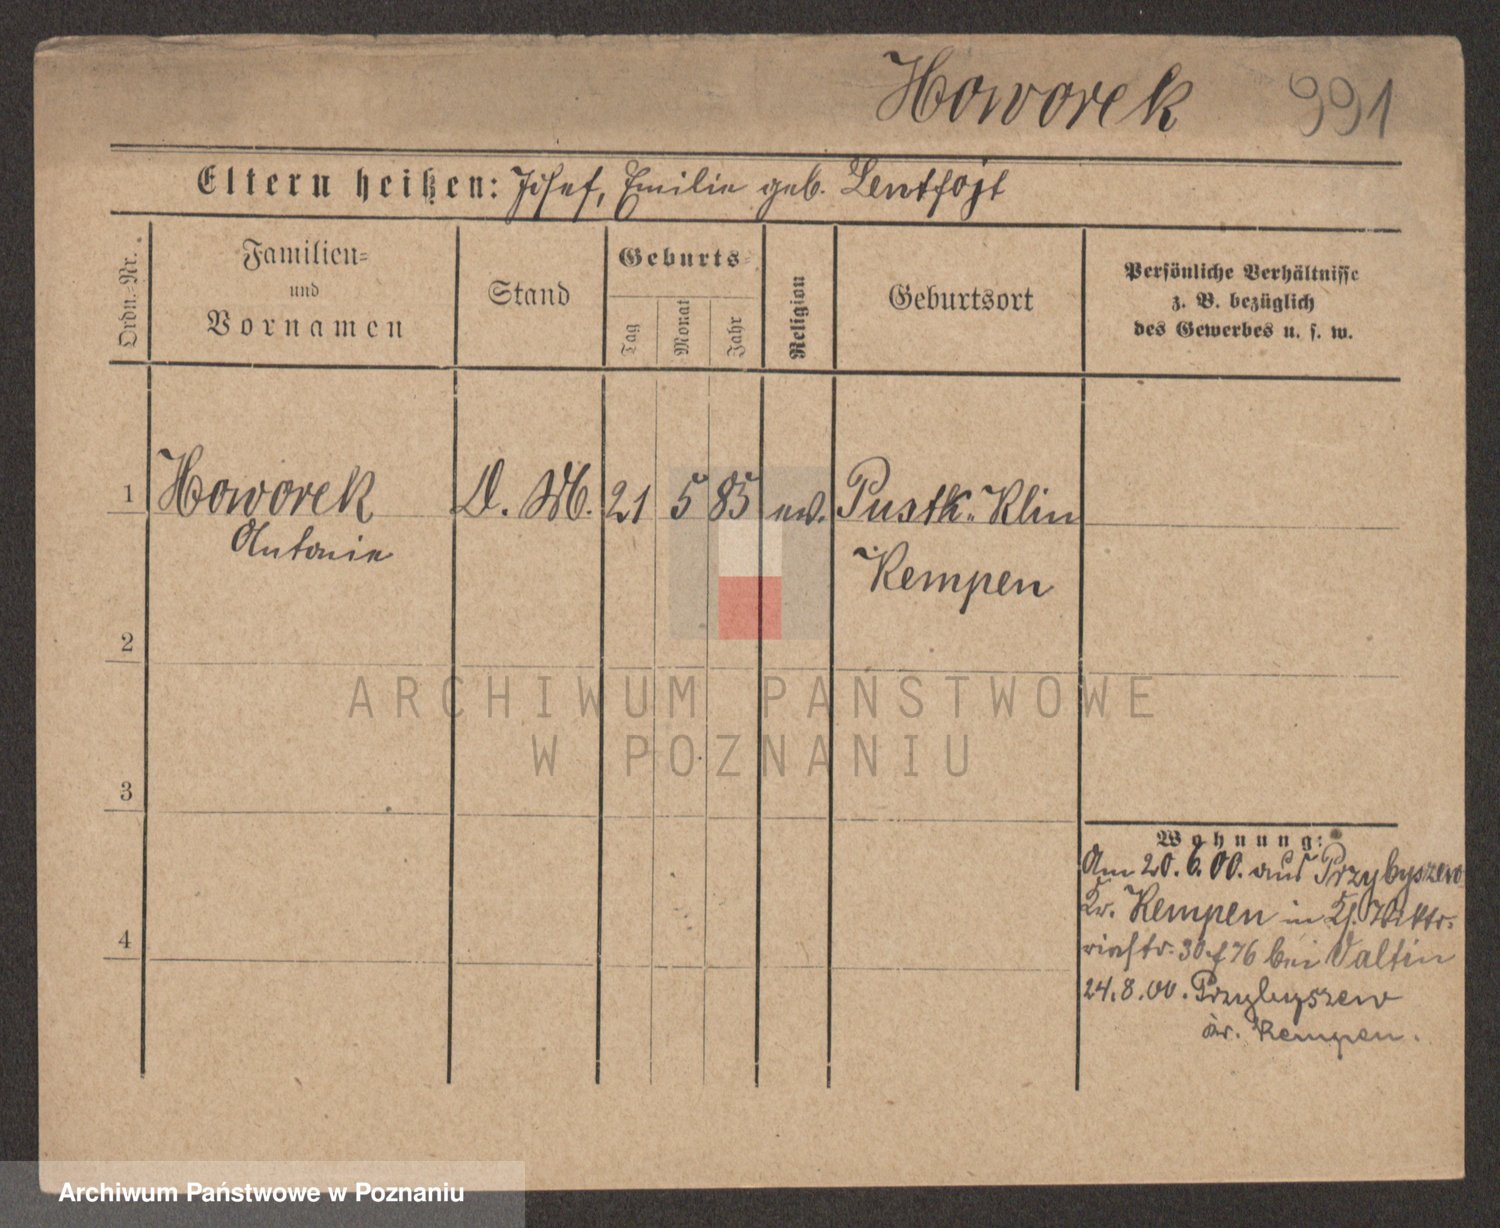 Howorek 991
Eltern heißen: Josef, Emilie geb. Lentfojt
Ordn.-Nr.
Familien-
und
Vornamen
Stand
Geburts-
Tag
Monat
Jahr
Religion
Geburtsort
Persönliche Verhältnisse
z. B. bezüglich
des Gewerbes u. s. w.
1 Howorek D. M. 21 5 85 ev. Pustk. Klin
Antonie
Kempen
2
ARCHIWUM PAŃSTWOWE
W POZNANIU
3
4
Wohnung:
Am 20.6.00. aus Przybyszew
Kr. Kempen in
30 f 76 bei Valtin
24.8.00. Przybyszew
Kr. Kempen.
Archiwum Państwowe w Poznaniu